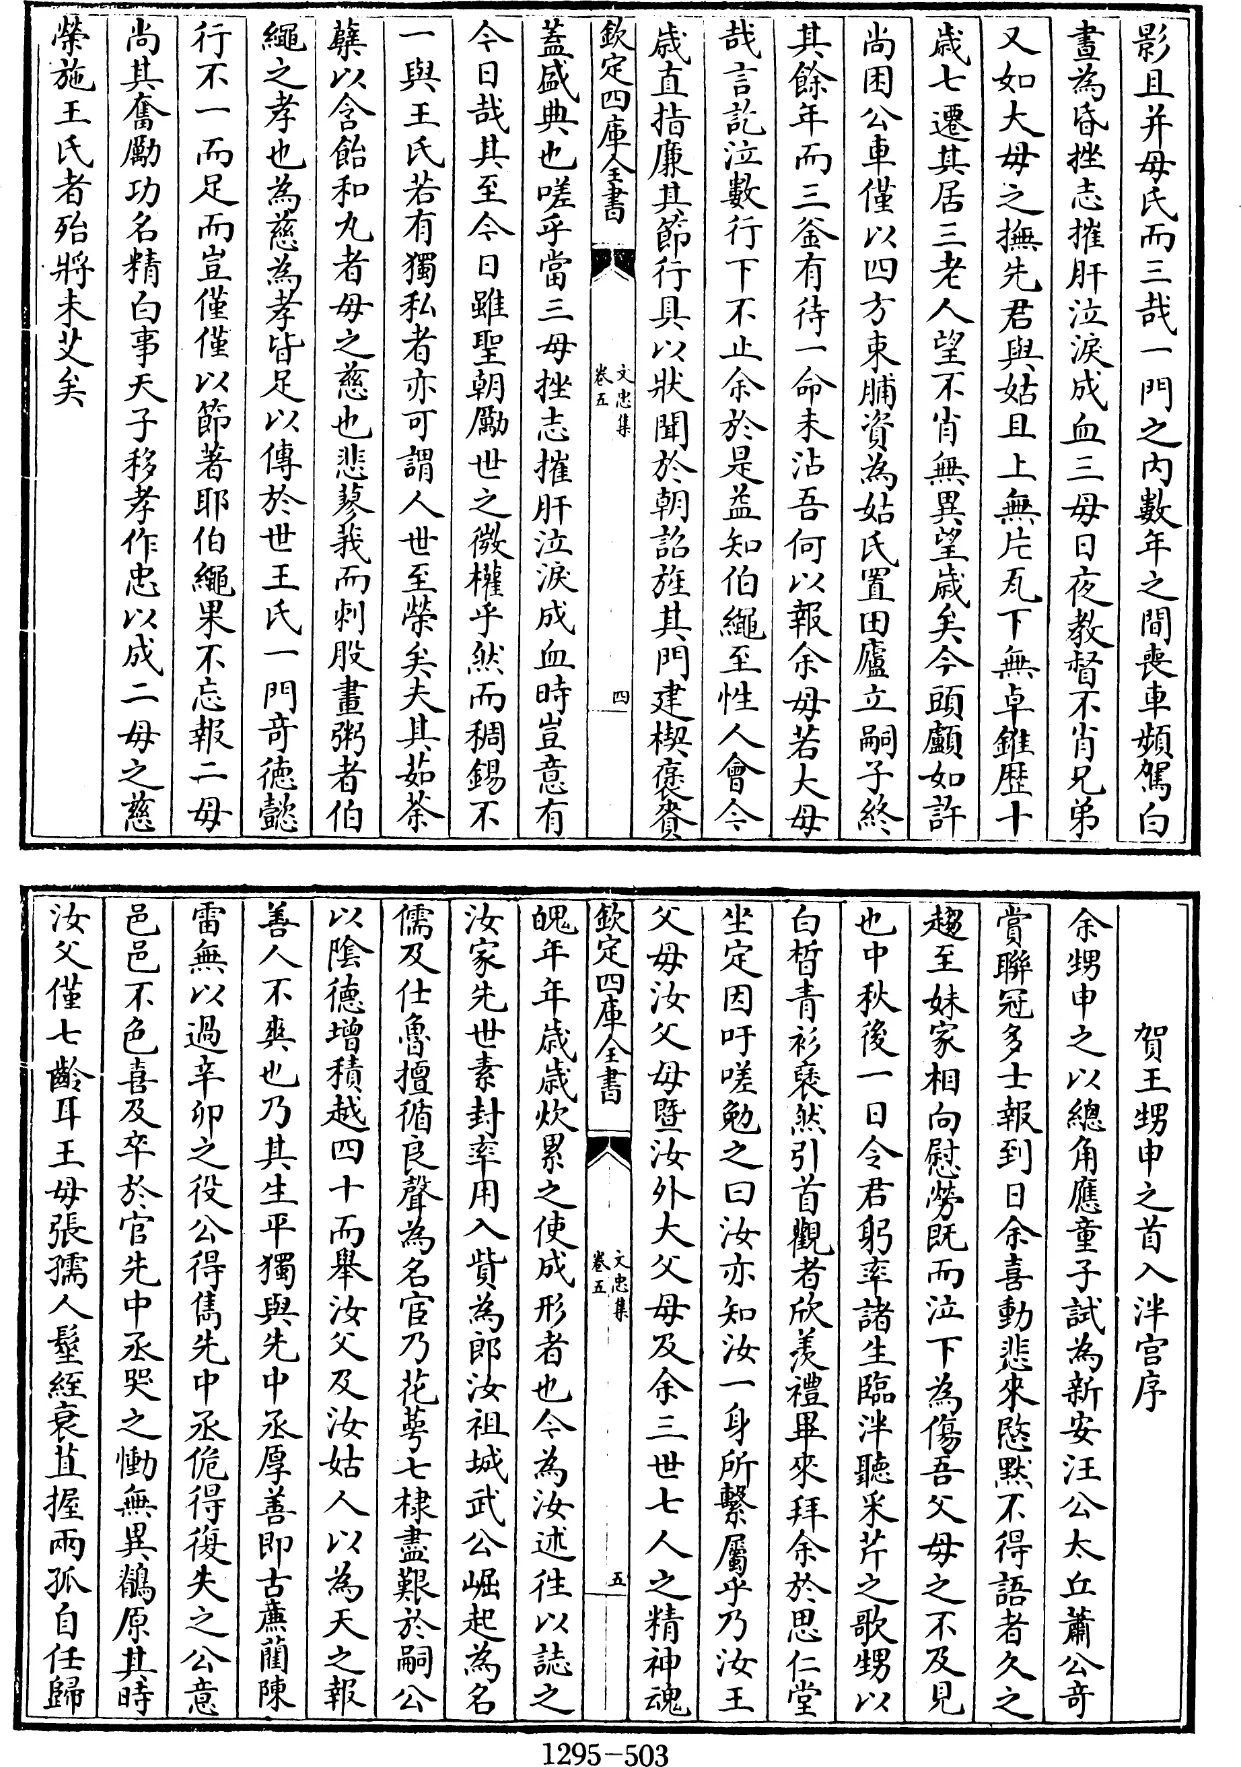 影且并母氏而三哉一門之内數年之間喪車頻駕白
晝為昏挫志摧肝泣淚成血三母日夜教督不肖兄弟
又如大母之撫先君與姑且上無片瓦下無卓錐歷十
歲七遷其居三老人望不肖無異望歲矣今頭顱如許
尚困公車僅以四方束脯資為姑氏置田廬立嗣子終
其餘年而三釜有待一命未沾吾何以報余母若大母
哉言訖泣數行下不止余於是益知伯繩至性人會今
歲直指廉其節行具以狀聞於朝詔旌其門建楔褒賚
欽定四庫全書
文忠集
卷五
四
蓋盛典也嗟乎當三母挫志摧肝泣淚成血時豈意有
今日哉其至今日雖聖朝勵世之微權乎然而稠錫不
一與王氏若有獨私者亦可謂人世至榮矣夫其茹荼
蘖以含飴和丸者母之慈也悲蓼莪而刺股畫粥者伯
繩之孝也為慈為孝皆足以傳於世王氏一門奇德懿
行不一而足而豈僅僅以節著耶伯繩果不忘報二母
尚其奮勵功名精白事天子移孝作忠以成二母之慈
榮施王氏者殆將未艾矣
賀王甥申之首入泮宫序
余甥申之以總角應童子試為新安汪公太丘蕭公竒
賞聯冠多士報到日余喜動悲來愍默不得語者久之
趨至妹家相向慰勞既而泣下為傷吾父母之不及見
也中秋後一日令君躬率諸生臨泮聽采芹之歌甥以
白晳青衫裦然引首觀者欣羨禮畢來拜余於思仁堂
坐定因吁嗟勉之曰汝亦知汝一身所繫屬乎乃汝王
父母汝父母暨汝外大父母及余三世七人之精神魂
欽定四庫全書
文忠集
卷五
五
魄年年歲歲炊累之使成形者也今為汝述往以誌之
汝家先世素封率用入貲為郎汝祖城武公崛起為名
儒及仕魯擅循良聲為名宦乃花萼七棣盡艱於嗣公
以陰德增積越四十而舉汝父及汝姑人以為天之報
善人不爽也乃其生平獨與先中丞厚善即古廉藺陳
雷無以過辛卯之役公得雋先中丞佹得復失之公意
邑邑不色喜及卒於官先中丞哭之慟無異鶺原其時
汝父僅七齡耳王母張孺人髽絰衰苴握兩孤自任歸
1295-503